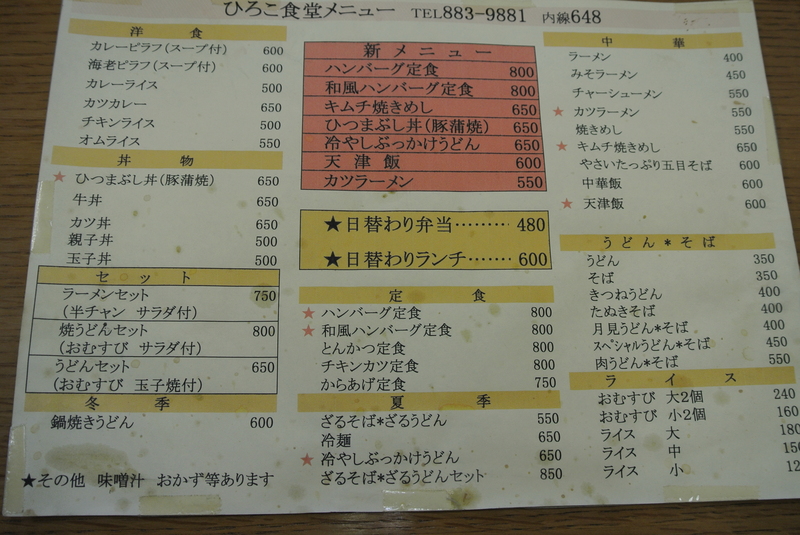 ひろこ食堂メニュー TEL883-9881 内線648
洋食
カレーピラフ(スープ付) 600
海老ピラフ(スープ付) 600
カレーライス 500
カツカレー 650
チキンライス 500
オムライス 550
丼物
★ ひつまぶし丼(豚蒲焼) 650
牛丼 650
カツ丼 650
親子丼 500
玉子丼 500
セット
ラーメンセット 750
(半チャン サラダ付)
焼うどんセット 800
(おむすび サラダ付)
うどんセット 650
(おむすび 玉子焼付)
冬季
鍋焼きうどん 600
★その他 味噌汁 おかず等あります
新メニュー
ハンバーグ定食 800
和風ハンバーグ定食 800
キムチ焼きめし 650
ひつまぶし丼(豚蒲焼) 650
冷やしぶっかけうどん 650
天津飯 600
カツラーメン 550
★日替わり弁当‥‥‥‥ 480
★日替わりランチ‥‥‥ 600
定食
★ ハンバーグ定食 800
★ 和風ハンバーグ定食 800
とんかつ定食 800
チキンカツ定食 800
からあげ定食 750
夏季
ざるそば*ざるうどん 550
冷麺 650
★ 冷やしぶっかけうどん 650
ざるそば*ざるうどんセット 850
中華
ラーメン 400
みそラーメン 450
チャーシューメン 550
★ カツラーメン 550
焼きめし 550
★ キムチ焼きめし 650
やさいたっぷり五目そば 600
中華飯 600
★ 天津飯 600
うどん*そば
うどん 350
そば 350
きつねうどん 400
たぬきそば 400
月見うどん*そば 400
スペシャルうどん*そば 450
肉うどん*そば 550
ライス
おむすび 大2個 240
おむすび 小2個 160
ライス 大 180
ライス 中
ライス 小